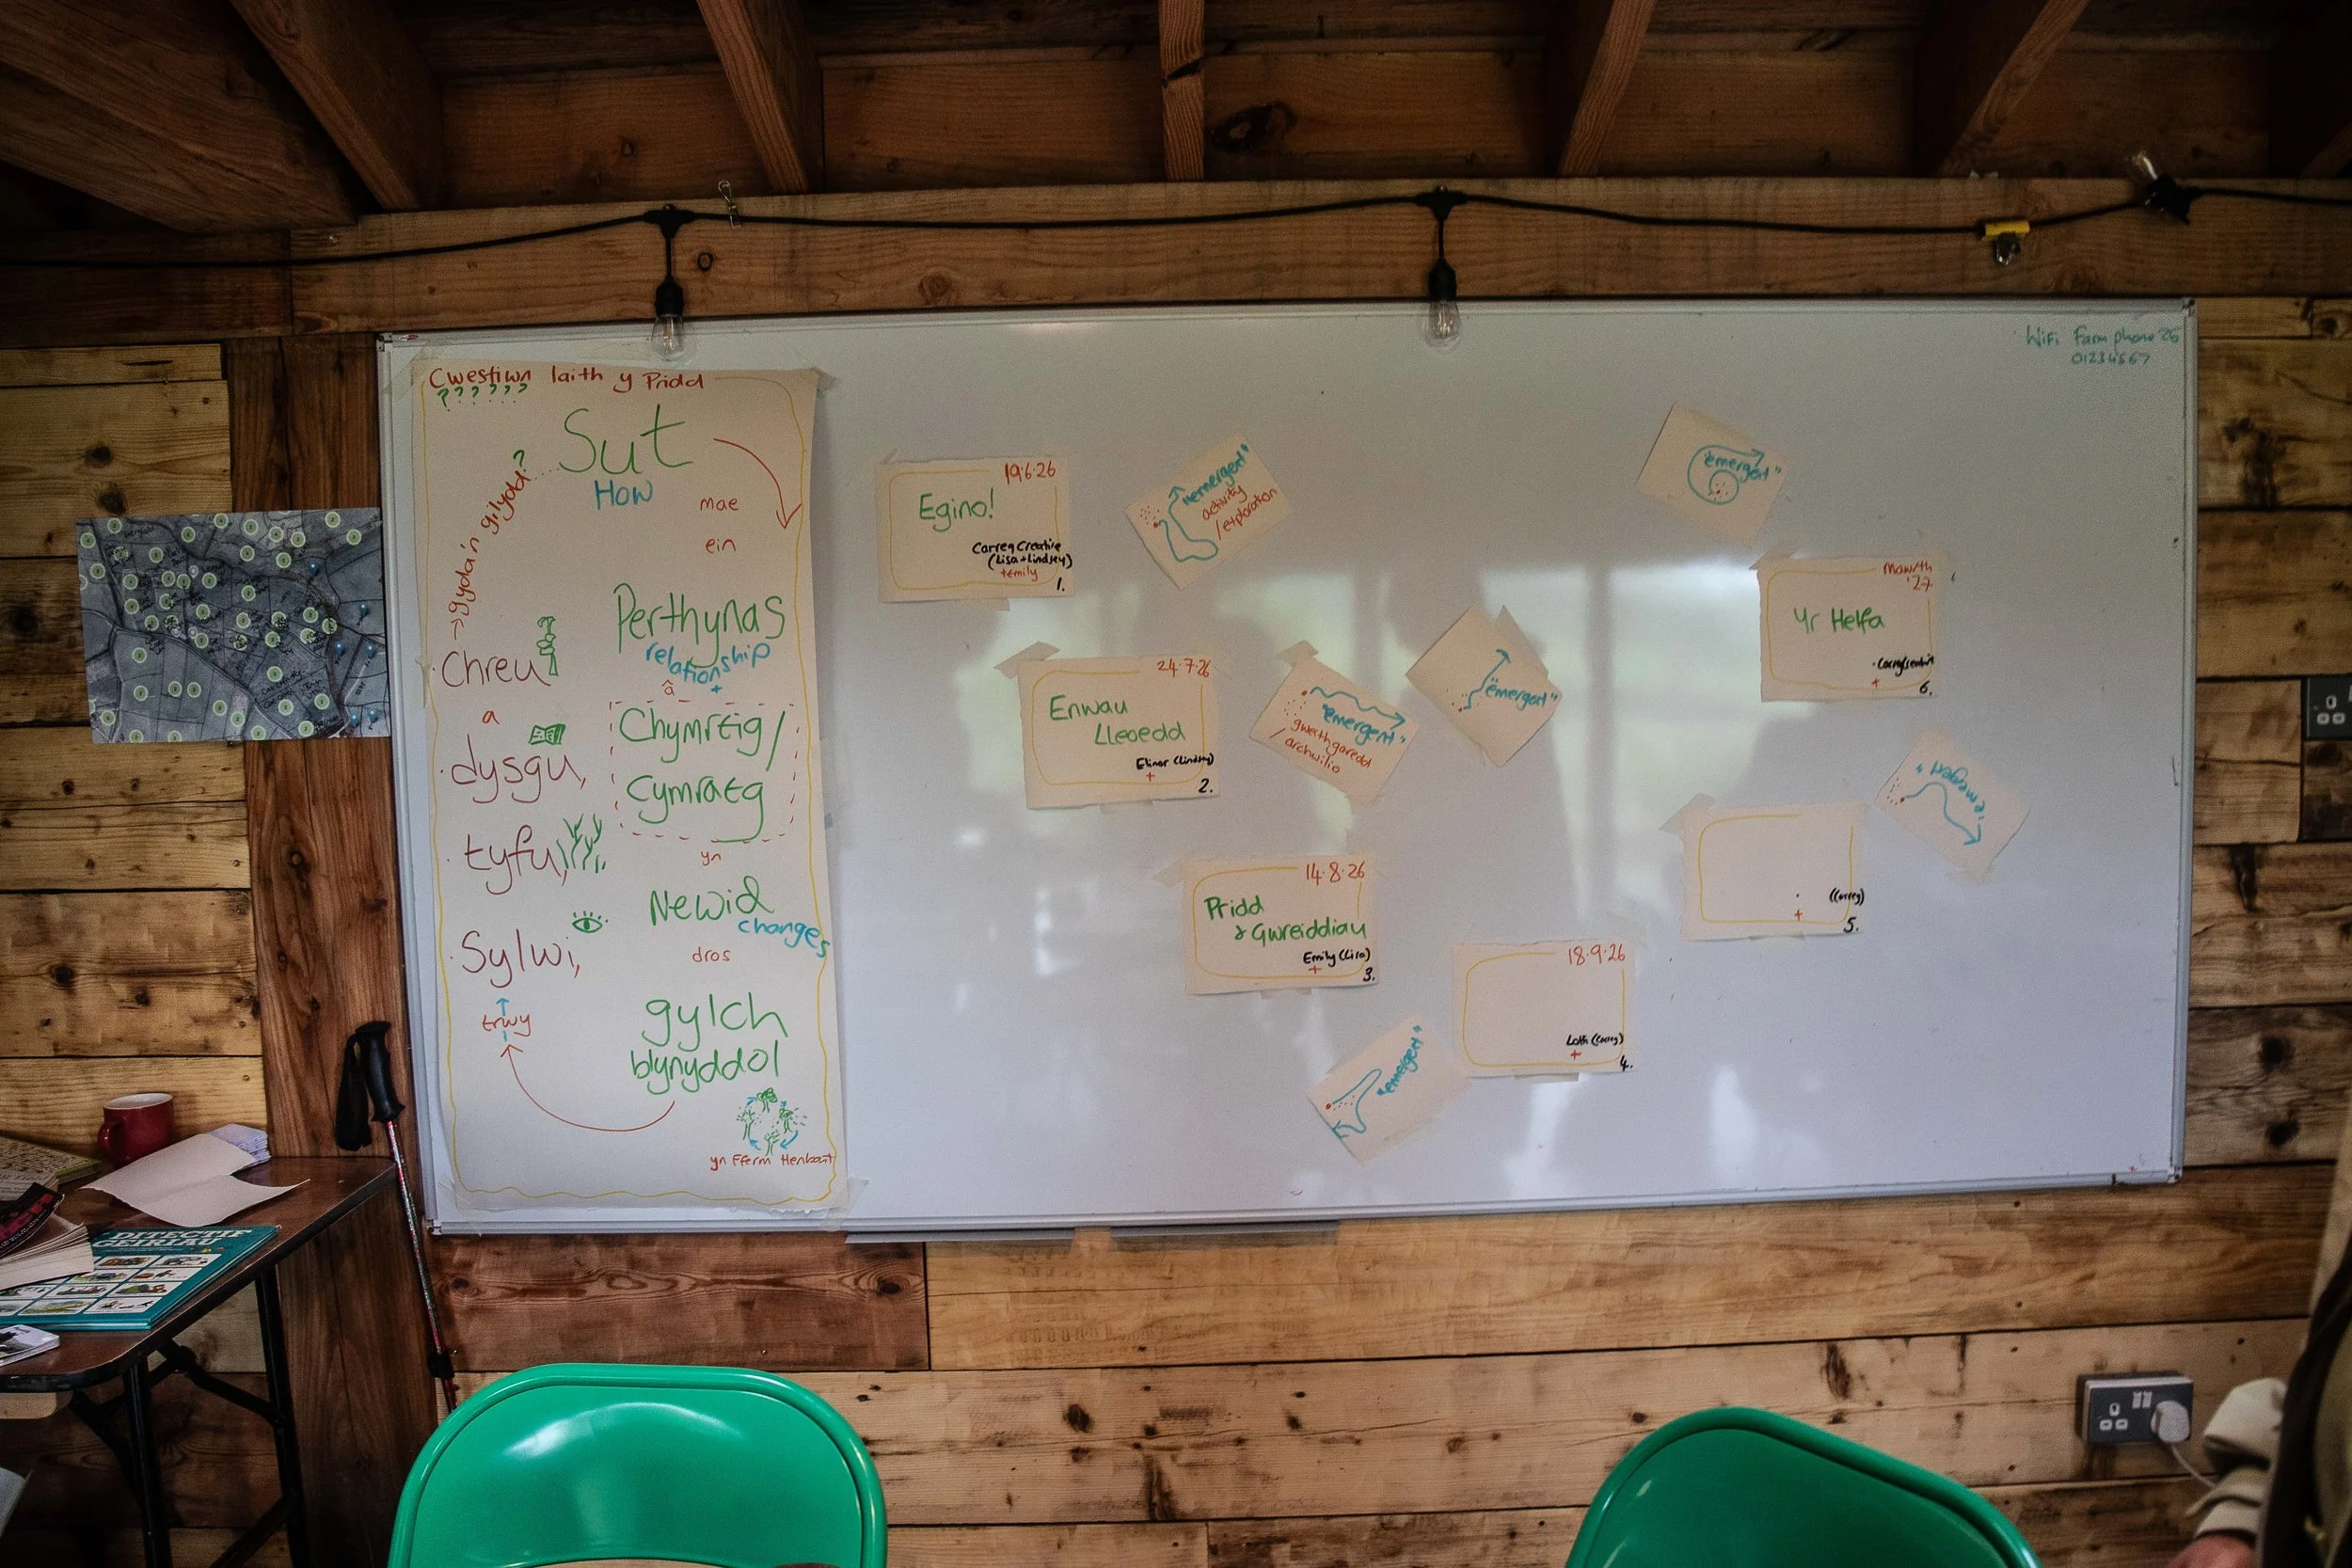 Cwestiwn Iaith y Pridd
??????
Sut
How
mae
ein
Perthynas
relationship
â
+
Chymraeg/
Cymraeg
yn
Newid
changes
dros
gylch
blynyddol
yn Fferm Henbant
trwy
Sylwi,
tyfu,
dysgu,
a
Chreu
gyda'n gilydd?
19.6.26
Egino!
Carreg Creative
(Lisa+Lindsey)
+Emily
1.
"emergent"
activity
/exploration
24.7.26
Enwau
Lleoedd
Elinor (Lindsey)
+
2.
"emergent"
gweithgaredd
/archwilio
14.8.26
Pridd
& Gwreiddiau
Emily (Lisa)
+
3.
"emergent"
18.9.26
(Carreg)
+
4.
"emergent"
(Carreg)
+
5.
"emergent"
Mawrth
'27
Yr Helfa
+
6.
"emergent"
WiFi Farm phone 26
01234567
DITECTIF
GEIRIAU